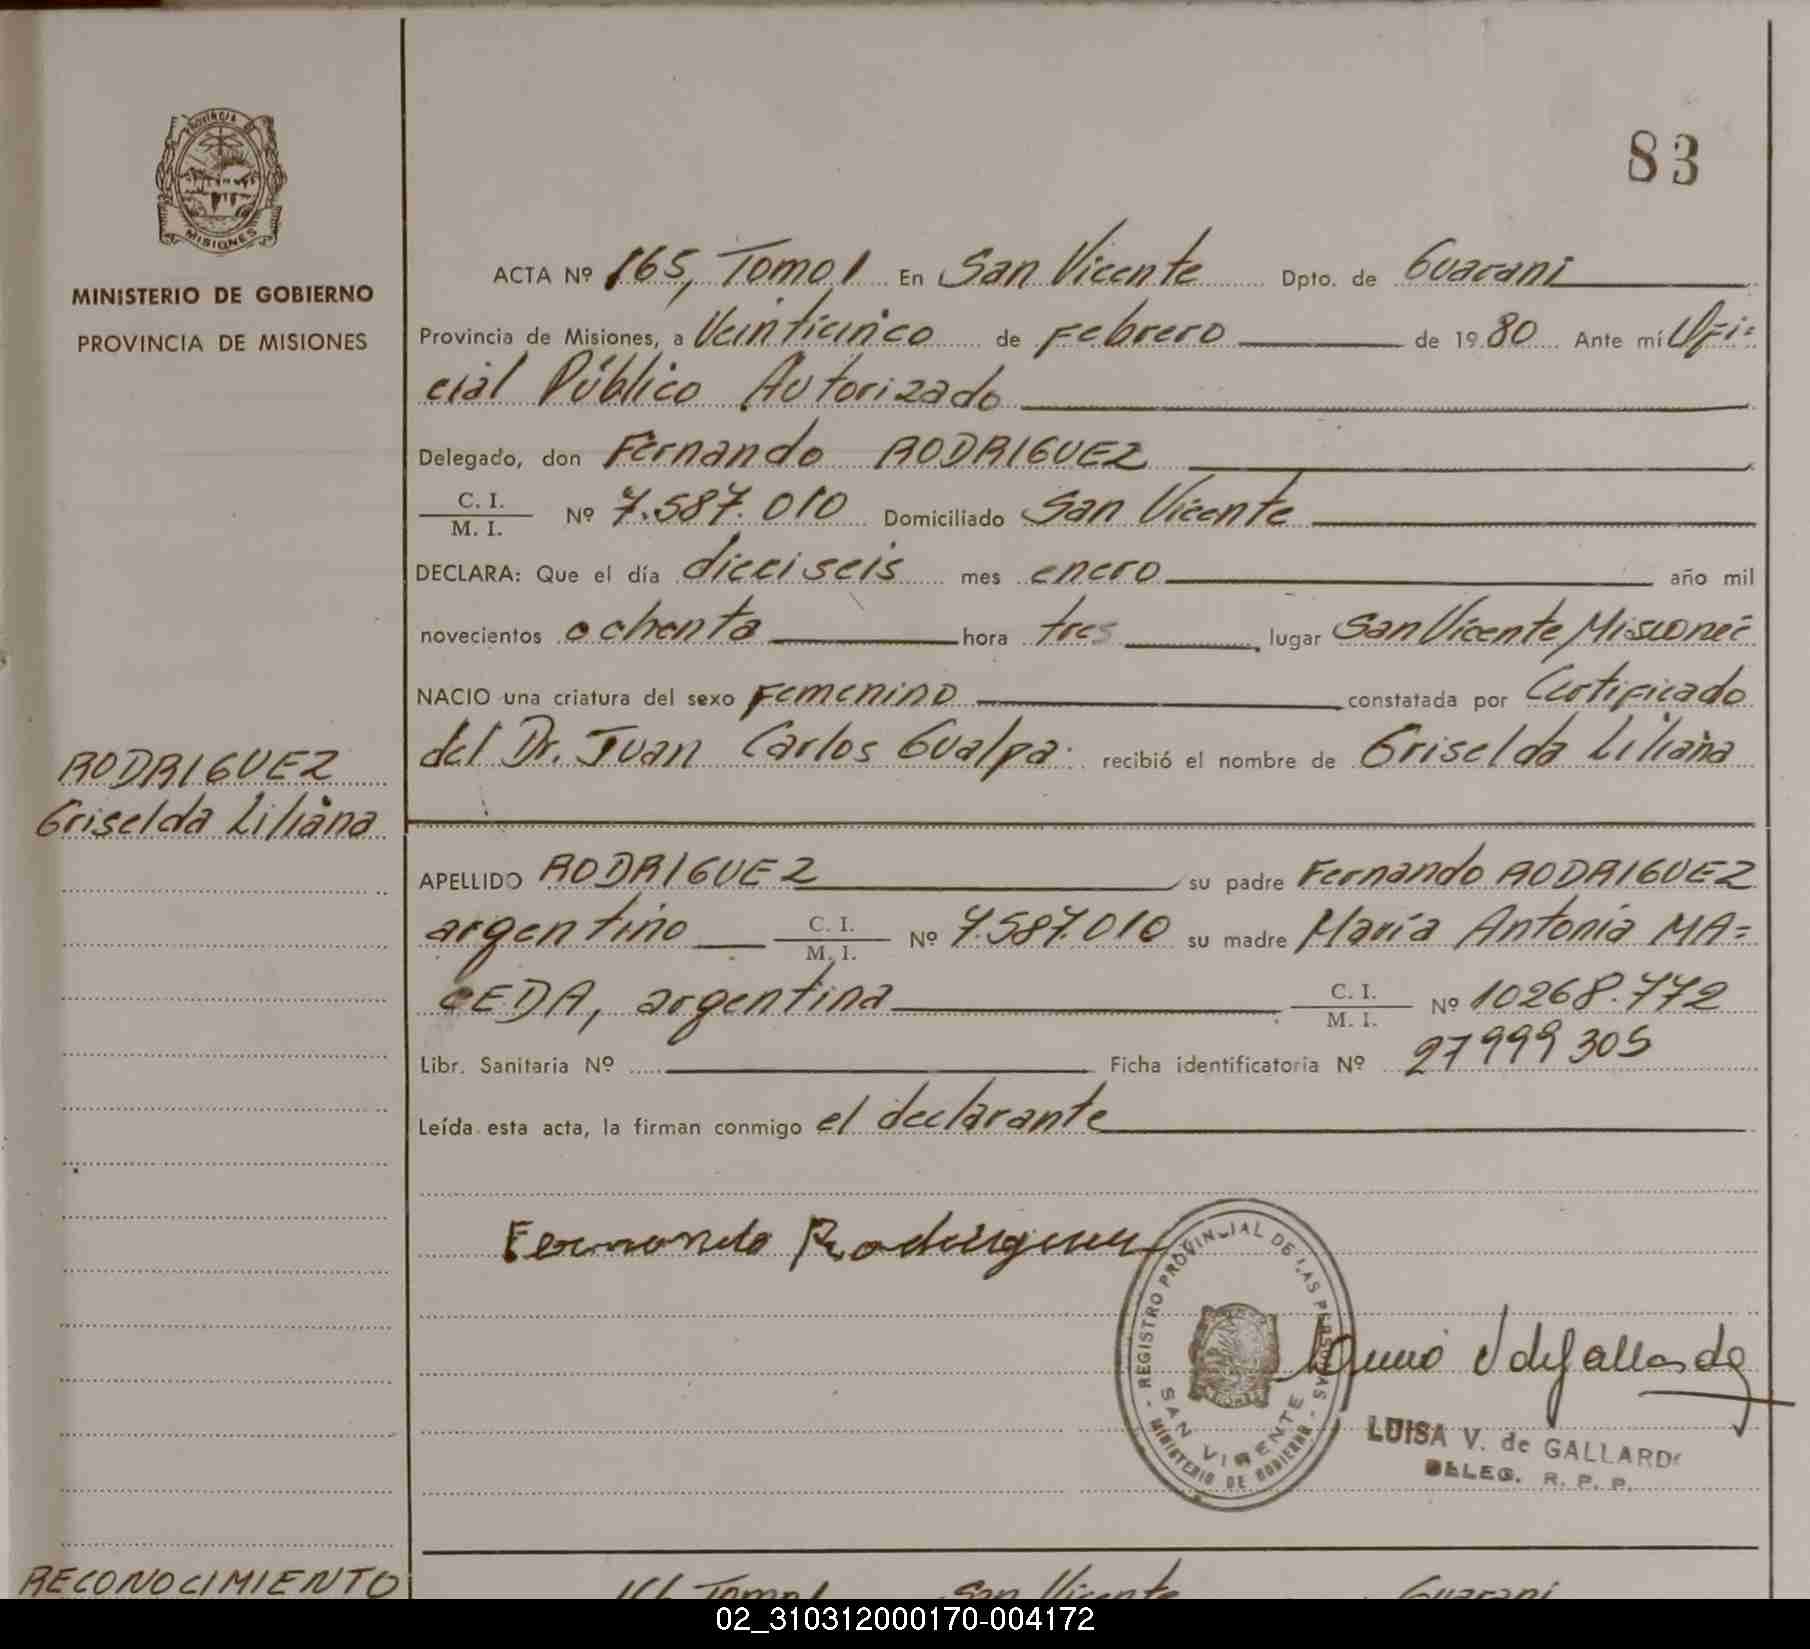 PROVINCIA DE
MISIONES
MINISTERIO DE GOBIERNO
PROVINCIA DE MISIONES
83
ACTA Nº 165, Tomo 1 En San Vicente Dpto. de Guarani
Provincia de Misiones, a Veinticinco de Febrero de 1980 Ante mí Ofi=
cial Público Autorizado
Delegado, don Fernando RODRIGUEZ
C. I.
M. I.
Nº 7.587.010 Domiciliado San Vicente
DECLARA: Que el día dieciseis mes enero año mil
novecientos ochenta hora tres, lugar San Vicente, Misiones
NACIO una criatura del sexo Femenino constatada por Certificado
del Dr. Juan Carlos Gualpa. recibió el nombre de Griselda Liliana
RODRIGUEZ
Griselda Liliana
APELLIDO RODRIGUEZ su padre Fernando RODRIGUEZ
argentino C. I.
M. I.
Nº 7.587.010 su madre María Antonia MA=
CEDA, argentina C. I.
M. I.
Nº 10268.772
Libr. Sanitaria Nº Ficha identificatoria Nº 27999305
Leída esta acta, la firman conmigo el declarante
Fernando Rodriguez
REGISTRO PROVINCIAL DE LAS PERSONAS
SAN VICENTE
MINISTERIO DE GOBIERNO
LUISA V. de GALLARDO
DELEG. R. P. P.
RECONOCIMIENTO
Tomo 1 San Vicente Guarani
02_310312000170-004172